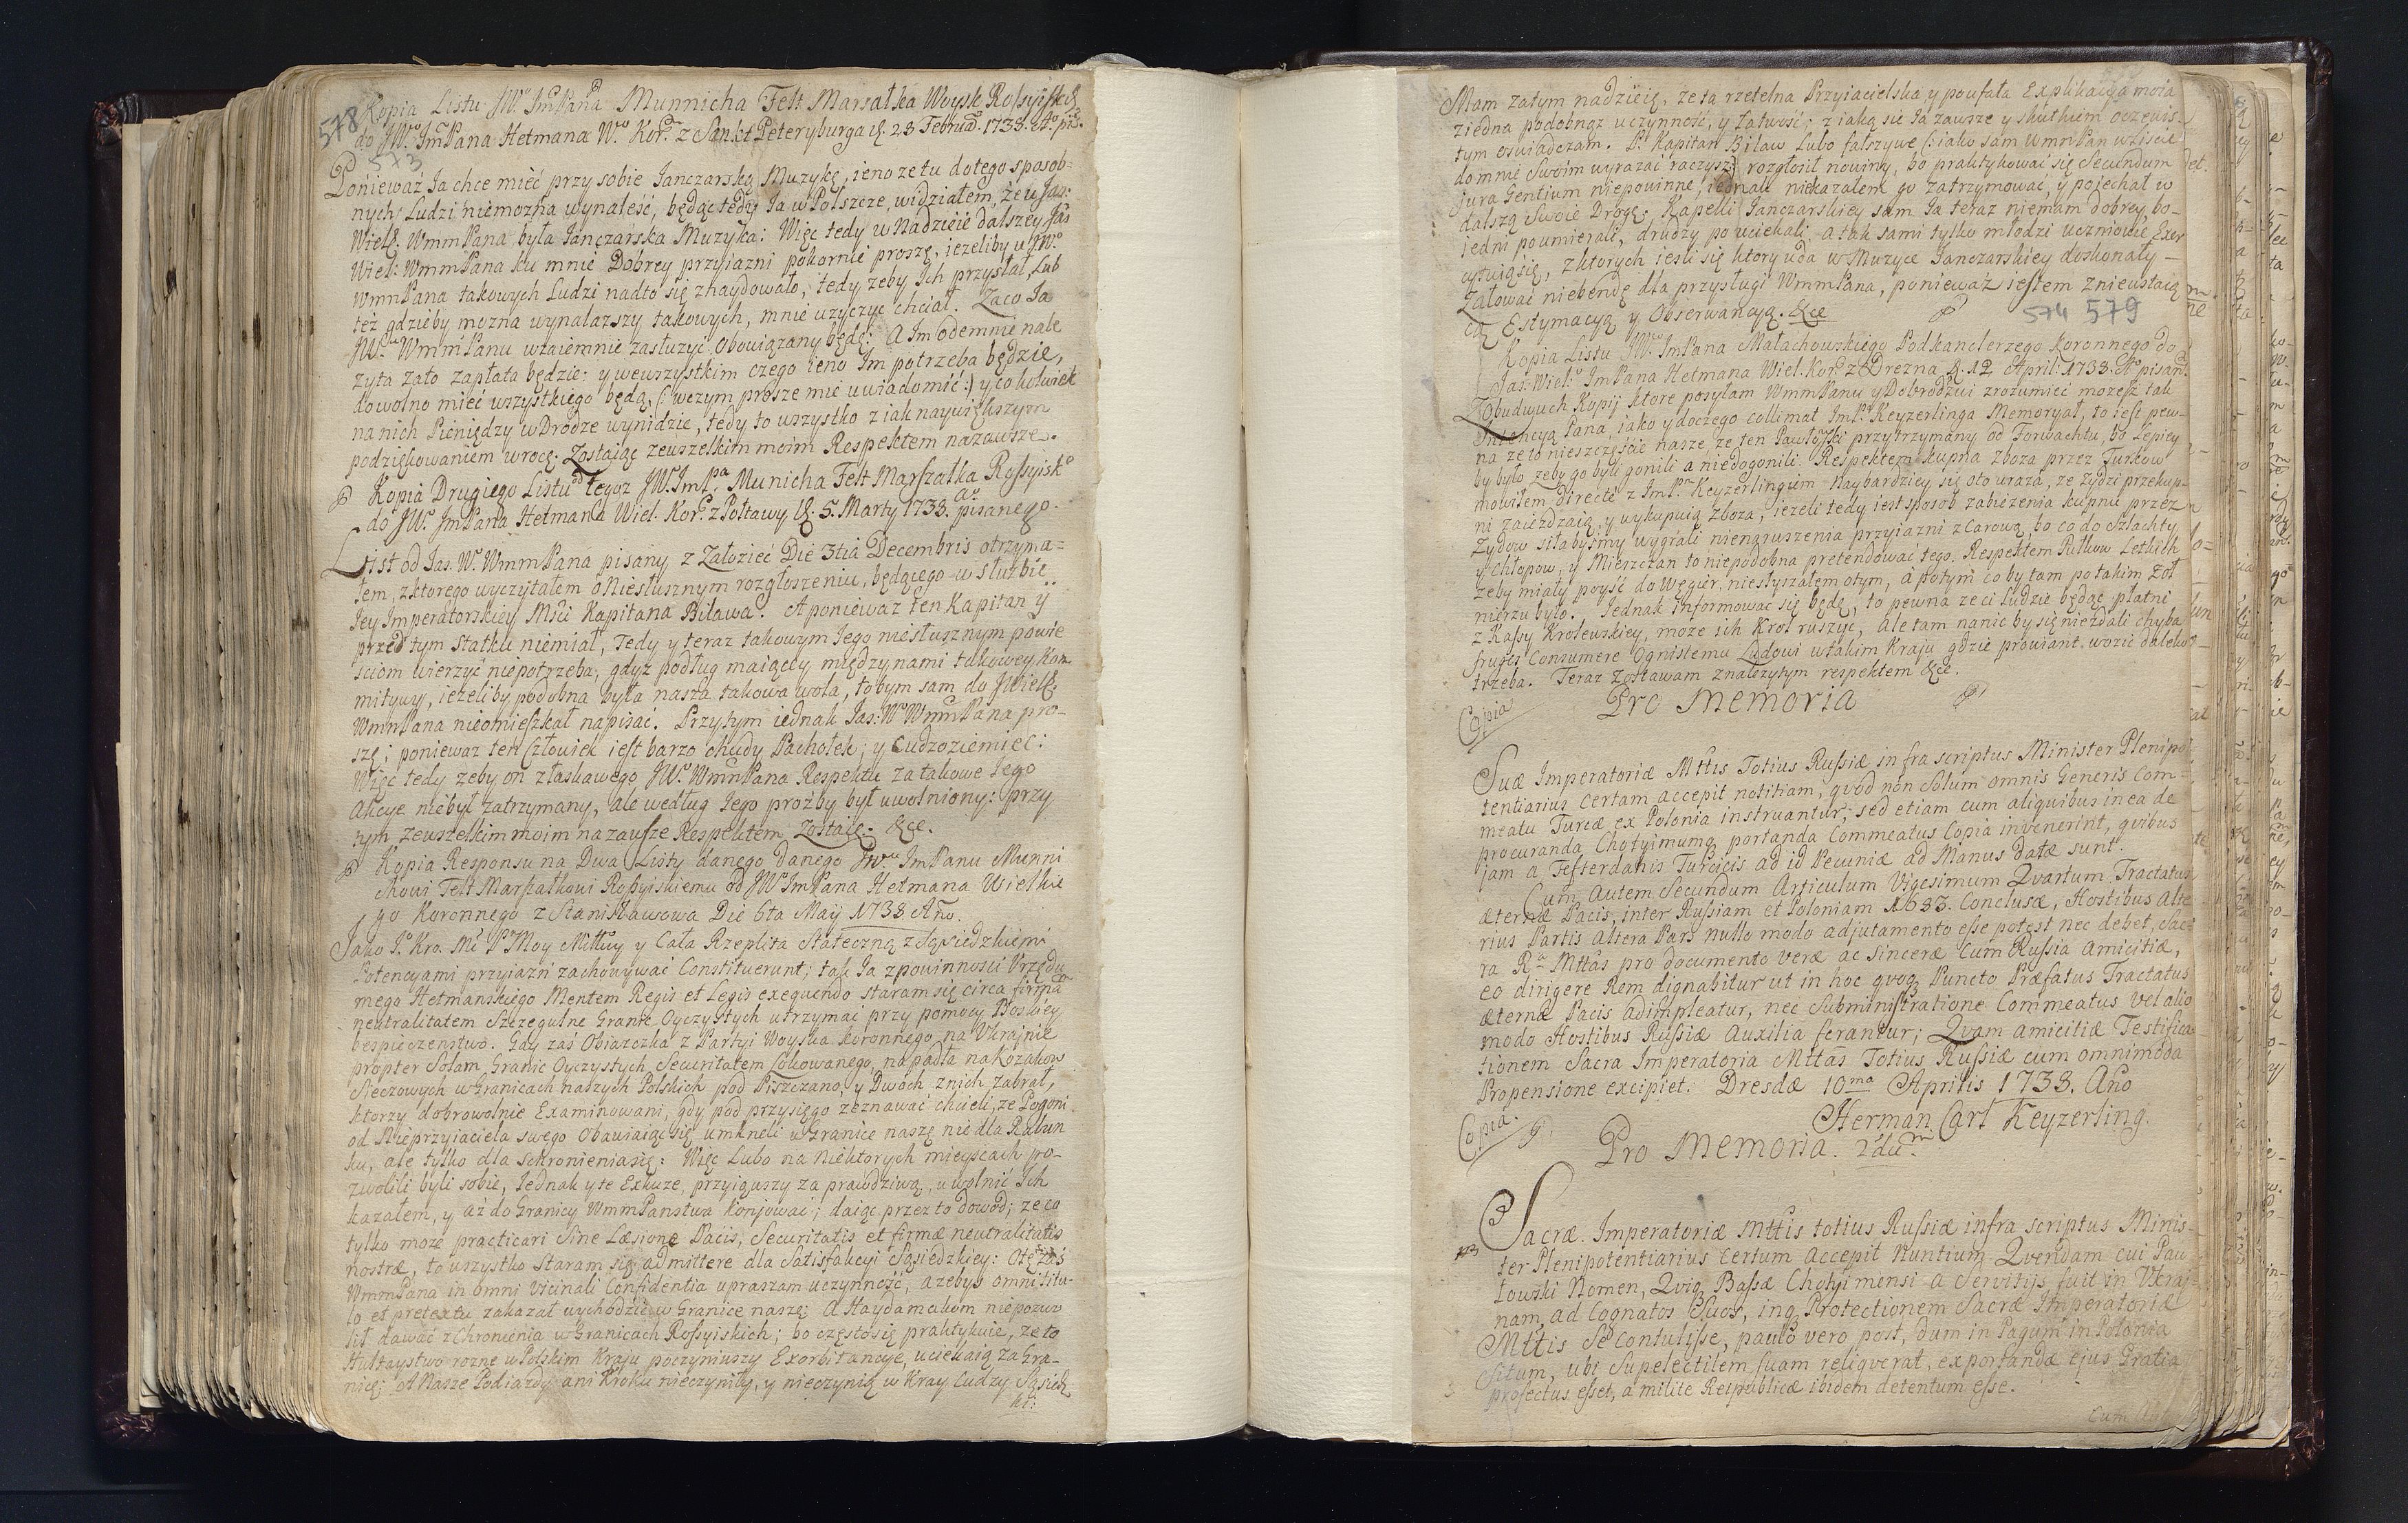 578
573
Kopia Listu JWo ImPana Munnicha Felt Marsałka Woysk Rossyisk:
do JWo ImPana Hetmana Wo Kor: z Sankt Peteryburga d. 23 Februa. 1738. Ao pis.
Ponieważ Ia chce mieć przy sobie Ianczarską Muzykę, ieno ze tu do tego sposob=
nych Ludzi niemozna wynaleść, będąc tedy Ia w Polszcze, widziałem, że u Jas:
Wiel: WmmPana była Ianczarska Muzyka: Więc tedy w Nadzieie dalszey Jas
Wiel: WmmPana ku mnie Dobrey przyiazni pokornie proszę, iezeliby u JWo
WmmPana takowych Ludzi nadto się znaydowało, tedy zeby Ich przysłał, Lub
też gdzieby mozna wynalazszy takowych, mnie uzyczyc chciał. Zaco Ia
JWu WmmPanu wzaiemnie zasłuzyc obowiązany będę: A Im odemnie nale
zyta zato zapłata będzie: y wewszystkim czego ieno Im potrzeba będzie,
dowolno mieć wszystkiego będą, (: wczym prosze mie uwiadomić :) y co kolwiek
na nich Pieniędzy w Drodze wynidzie, tedy to wszystko z iak naywiększym
podziękowaniem wrocę. Zostaiąc zewszelkim moim Respektem nazawsze.
Kopia Drugiego Listu od tegoz JW. ImPa Municha Felt Marszałka Rossyisko
do JWo ImPana Hetmana Wiel. Kor: z Połtawy d. 5. Marty 1738. Ao pisanego.
List od Jas. W. WmmPana pisany z Załoziec Die 3tia Decembris otrzyma=
łem, z ktorego wyczytałem o Niesłusznym rozgłoszeniu, będącego w służbie
Iey Imperatorskiey Mści Kapitana Biława. A poniewaz ten Kapitan y
przed tym Statku niemiał, Tedy y teraz takowym Iego niesłusznym powie
sciom wierzyć niepotrzeba, gdyz podług maiącey między nami takowey Kon
mitywy, iezeliby podobna była nasza takowa wola, to bym sam do JWielo
WmmPana nieomieszkał napisać. Przytym iednak Jas: Wo WmmPana pro-
szę; poniewaz ten Człowiek iest barzo chudy Pachołek, y Cudzoziemiec:
Więc tedy zeby on z łaskawego JWo WmmPana Respektu za takowe Iego
Akcye niebył zatrzymany, ale według Iego prozby był uwolniony: przy
tym zewszelkim moim nazawsze Respektem Zostaię. &ce.
Kopia Responsu na Dwa Listy danego danego JWu ImPanu Munni
chowi Felt Marszałkowi Rossyiskiemu od JWo ImPana Hetmana Wielkie
go Koronnego z Stanisławowa Die 6ta Maij 1738 Ano.
Jako Io Kro. Mć Pn Moy Miłłwy y Cała Rzeplita Stateczną z Sąsiedzkiemi
Potencyami przyiazń zachowywać Constituerunt; tak Ia z powinnosci Urzędu
mego Hetmanskiego Mentem Regis et Legis exequendo staram się circa firma
neutralitatem Szczegulne Granic Oyczystych utrzymać przy pomocy Boskiey
bespieczenstwo. Gdy zaś Obiazczka z Partyi Woyska Koronnego na Ukrajnie
propter Solam Granic Oyczystych Securitatem Lokowanego, napadła na Kozakow
Sieczowych w Granicach naszych Polskich pod Piszczano, y Dwóch z nich zabrał,
ktorzy dobrowolnie Examinowani, gdy pod przysięgo zeznawać chcieli, ze Pogoni
od Nieprzyiaciela swego obawiaiąc się umkneli w Granice naszę nie dla Rabun
ku, ale tylko dla schronieniasię: Więc Lubo na niektorych mieyscach po-
zwolili byli sobie, Iednak y te Exkuze, przyiąwszy za prawdziwą, uwolnić Ich
kazałem, y aż do Granicy WmmPanstwa konjować; daiąc przez to dowod; ze co
tylko może practicari Sine Læsione Pacis, Securitatis et firmæ neutralitatis
nostræ, to wszystko staram się admittere dla Satisfakcyi Sąsiedzkiey: Otęż
WmmPana in omni vicinali Confidentia upraszam uczynność, azebys omni titu-
lo et pretextu zakazał wychodzić w Granice naszę; A Haydamakom niepozwo
lił dawać zchronienia w Granicach Rossyiskich; bo często się praktykuie, ze to
Hultaystwo rozne w Polskim Kraju poczyniwszy Exorbitancye, uciekaią za Gra-
nicę; A Nasze Podiazdy ani Kroku nieczyniły, y nieczynią w Kray Cudzy Sąsiedz
ki:
Mam zatym nadzieię, ze ta rzetelna Przyiacielska y poufała Explikacya moia
ziedna podobnąz uczynność, y łatwość; z iaką się Ia zawsze y skutkiem oczewis-
tym oswiadczam. Pn Kapitan Biław Lubo fałszywe (: iako sam WmmPan w Liscie
do mnie Swoim wyrazać raczysz :) rozgłosił nowiny, bo praktykować się Secundum
jura Gentium niepowinne, iednak niekazałem go zatrzymować, y pojechał w
dalszą Swoię Drogę. Kapelli Ianczarskiey sam Ia teraz niemam dobrey, bo-
iedni poumierali, drudzy po uciekali. a tak sami tylko młodzi uczniowie Exer
cytuiąsię, z ktorych iesli się ktory uda w Muzyce Ianczarskiey doskonały-
Załować niebende dla przysługi WmmPana, ponieważ iestem z nieustaią
cą Estymacyą y Obserwancyą. &ce
574 579
Kopia Listu JWo ImPana Małachowskiego Podkanclerzego Koronnego do
Jas: Wiel: ImPana Hetmana Wiel. Kor: z Drezna d. 12 April: 1738. Ao pisan:
Z obudwuch Kopij ktore posyłam WmmPanu y Dobrodziei zrozumieć mozesz tak
Intencyą Pana, iako y doczego collimat ImPa Keyzerlinga Memoryał, to iest pew-
na ze to nieszczęscie nasze, ze ten Pawłoski przytrzymany od Forwachtu, bo Lepiey
by było zeby go byli gonili a niedogonili. Respektem kupna zboza przez Turkow
mowiłem directe z ImPn Keyzerlingiem naybardziey się oto uraza, ze Zydzi przekup-
ni zaieżdzaią, y wykupuią zboza, iezeli tedy iest sposob zabiezenia kupnu przez
Zydow siłabysmy wygrali nienaruszenia przyiazni z Carową, bo co do Szlachty
y chłopow, y Mieszczan to niepodobna pretendować tego. Respektem Pułkow Letkich
zeby miały poyść do Węgier. niesłyszałem otym, a potym co by tam po takim Zoł
nierzu było. Jednak informowac się będę, to pewna ze ci Ludzie będąc płatni
z Kassy Krolewskiey, moze ich Krol ruszyc, ale tam nanic by się niezdali chyba
fruges Consumere Ognistemu Ludowi w takim Kraju gdzie prowiant wozic daleko
trzeba. Teraz zostawam znalezytym respektem &ce.
Copia
Pro Memoria
Suæ Imperatoriæ Mttis Totius Russiæ infra scriptus Minister Plenipo-
tentiarius certam accepit notitiam, qvod non Solum omnis Generis Com=
meatu Turcæ ex Polonia instruantur, sed etiam cum aliquibus in ea de
procuranda Chotyimumq portanda Commeatus Copia invenerint, qvibus
jam a Tefterdanis Turcicis ad id Pecuniæ ad Manus datæ sunt.
Cum Autem Secundum Articulum Vigesimum Qvartum Tractatus
æternæ Pacis, inter Russiam et Poloniam 1683. Conclusæ, Hostibus alte
rius Partis altera Pars nullo modo adjutamento esse potest nec debet, Sac
ra Ra Mttas pro documento veræ ac sinceræ Cum Russia amicitiæ,
eo dirigere Rem dignabitur ut in hoc qvoq Puncto Præfatus Tractatus
æternæ Pacis adimpleatur, nec Subministratione Commeatus vel alio
modo Hostibus Russiæ Auxilia ferantur; Qvam amicitiæ Testifica
tionem Sacra Imperatoria Mttas Totius Russiæ cum omnimoda
Propensione excipiet. Dresdæ 10ma Aprilis 1738. Ano
Herman Carl Keyzerling.
Copia
Pro Memoria. 2dum
Sacræ Imperatoriæ Mttis totius Russiæ infra scriptus Minis-
ter Plenipotentiarius certum accepit Nuntium Qvendam cui Paw
łowski Nomen, Qviq Bassæ Chotyimensi a Servitijs fuit in Ukraj
nam, ad Cognatos Suos, inq Protectionem Sacræ Imperatoriæ
Mttis Se Contulisse, paulo vero post, dum in Pagum in Polonia
Situm, ubi Supelectilem Suam reliqverat, exportandæ ejus Gratia
profectus esset, a milite Reipublicæ ibidem detentum esse.